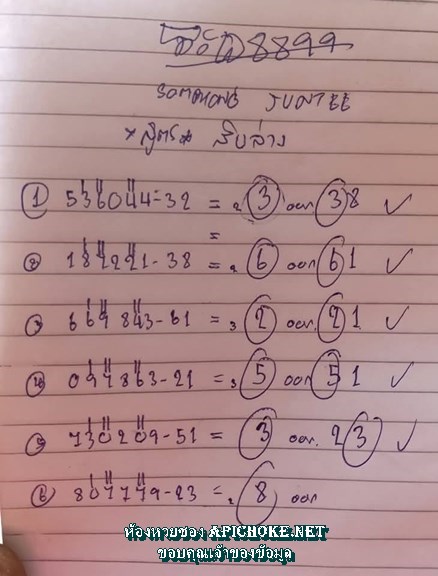 8899
SOMPHONG JUNTEE
*สูตร* สิบล่าง
1 536044-32 = 2 3 ออก 38 ✓
=
2 184221-38 = 2 6 ออก 61 ✓
3 669843-61 = 3 2 ออก. 21 ✓
4 097863-21 = 3 5 ออก 51 ✓
5 730209-51 = 3 ออก. 23 ✓
6 807779-23 = 2 8 ออก
ห้องหวยซอง APICHOKE.NET
ขอบคุณเจ้าของข้อมูล